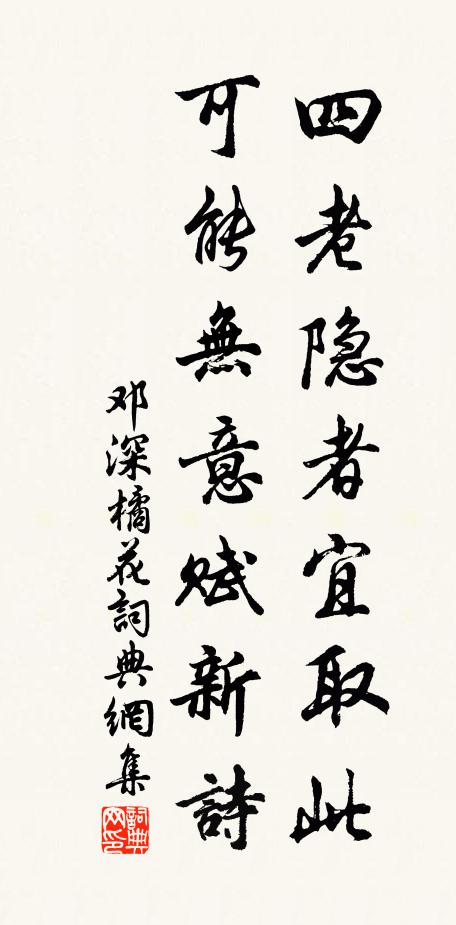 四老隐者宜取此
可能無意赋新詩
邓深橘花詞典網集
詞典网印